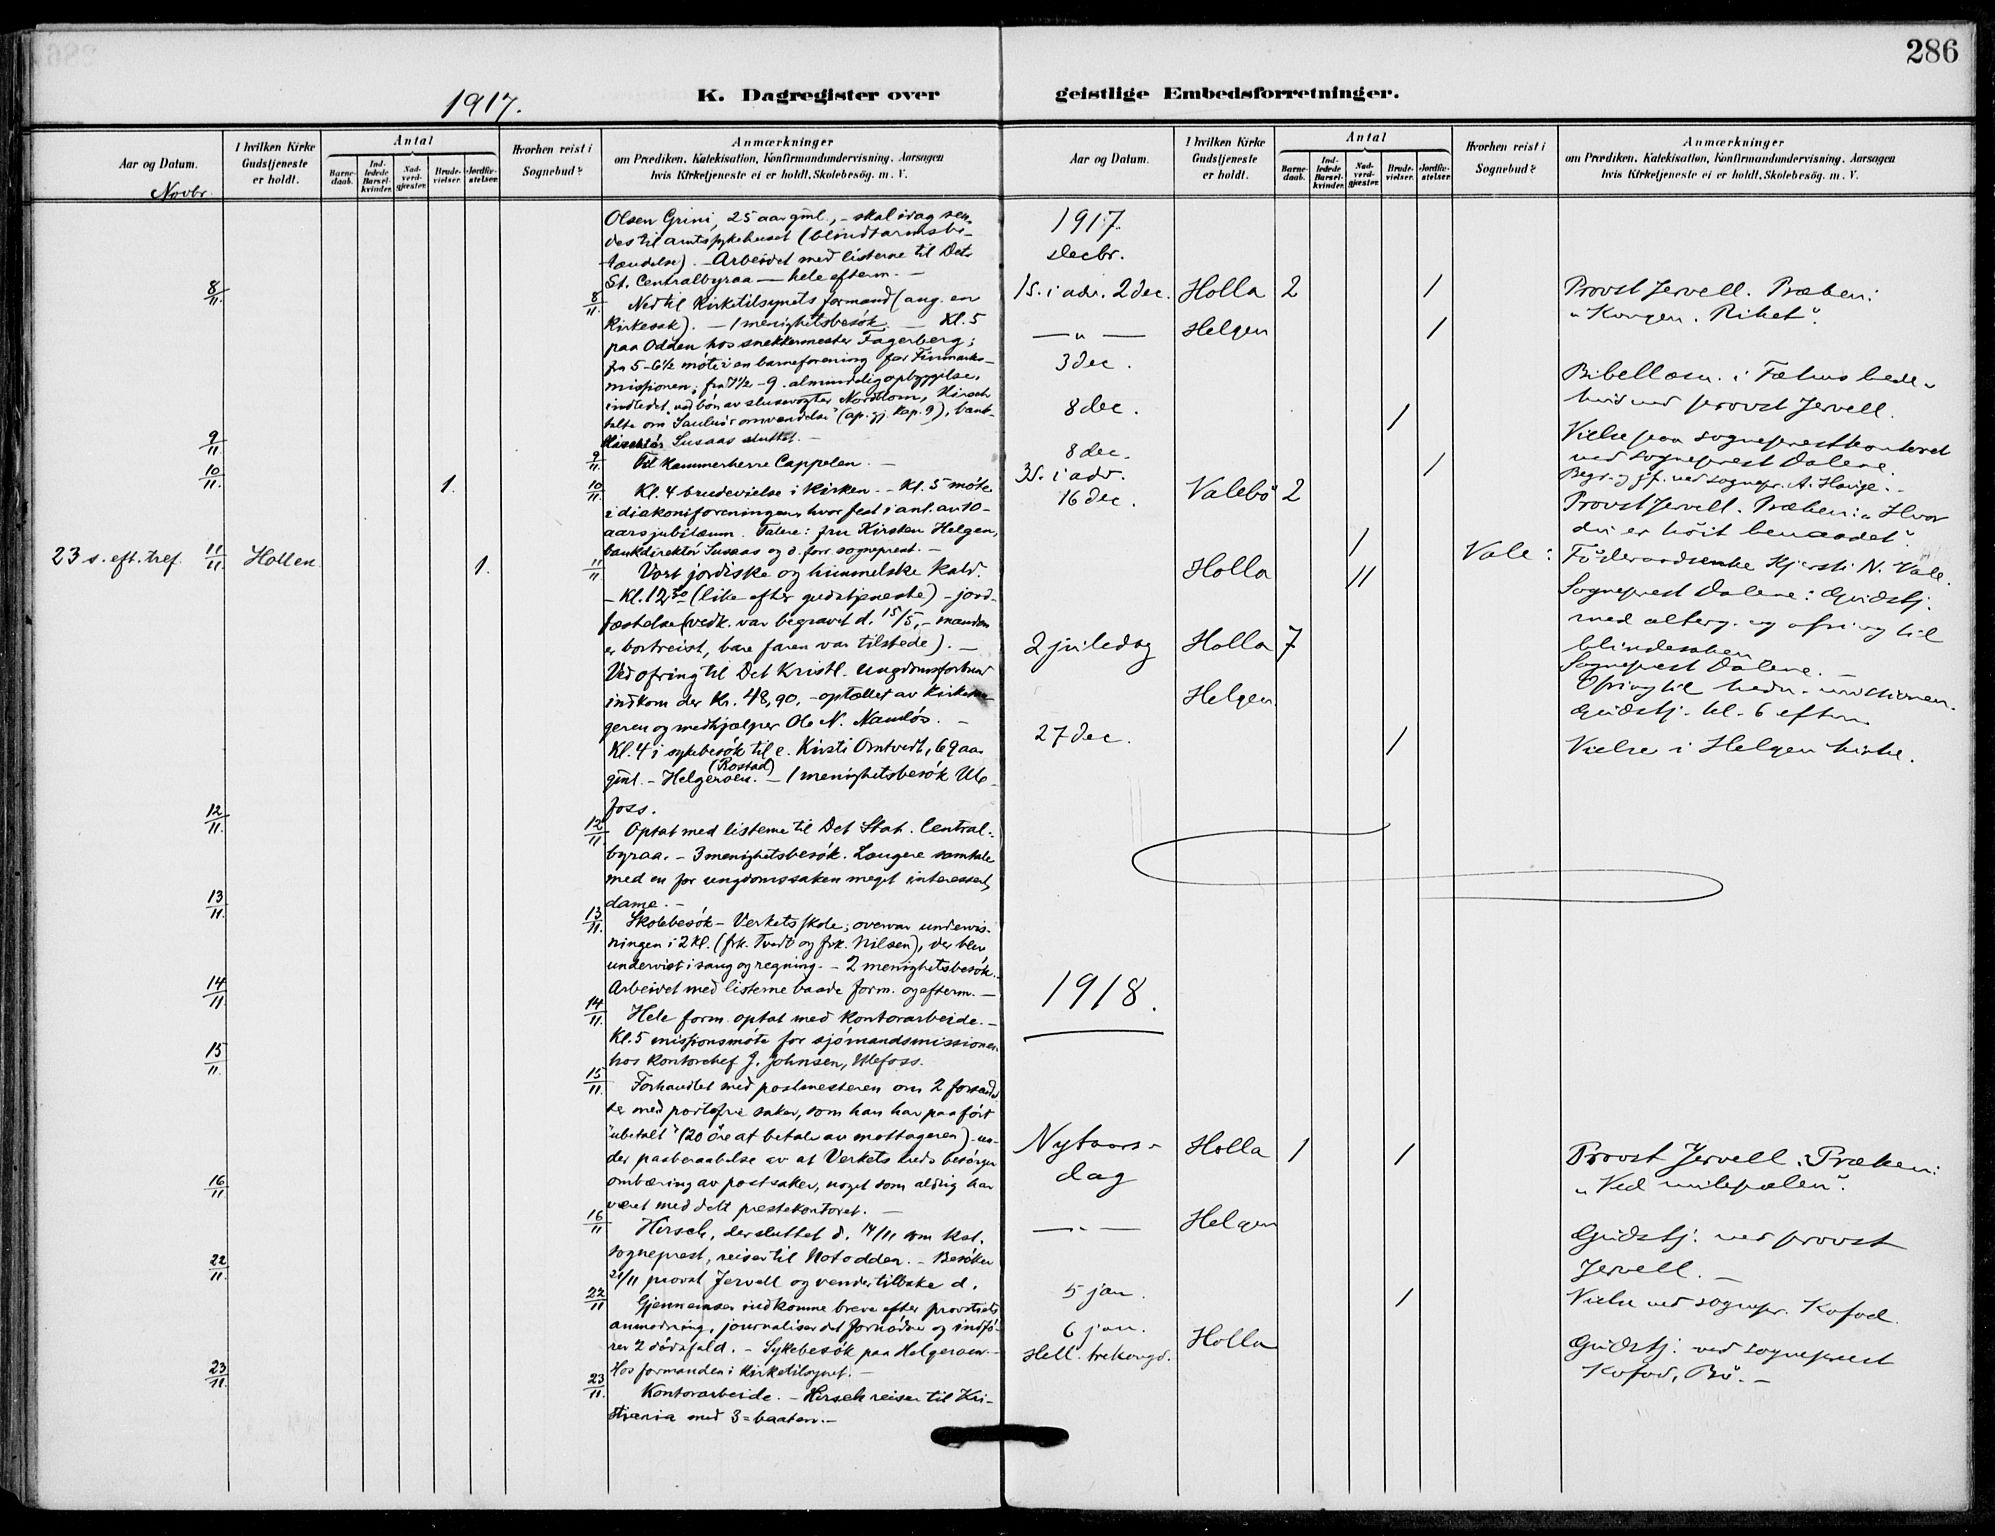 286
K. Dagregister over
geistlige Embedsforretninger.
1917.
Aar og Datum.
Novbr.
I hvilken Kirke
Gudstjeneste
er holdt.
Antal
Barne-
daab.
Ind-
ledede
Barsel-
kvinder.
Nad-
verd-
gjester.
Brude-
vielser.
Jordfæ-
stelser.
Hvorhen reist i
Sognebud?
Anmærkninger
om Prædiken, Katekisation, Konfirmandundervisning, Aarsagen
hvis Kirketjeneste ei er holdt, Skolebesøg. m. V.
Olsen Grini, 25 aar gml., - skal idag sen-
des til amtssykehuset (blindtarmsbe-
tændelse). - Arbeidet med listerne til Det
St. Centralbyraa - hele efterm. -
8/11. 8/11. Ned til Kirketilsynets formand (ang. en
kirkesak). - 1 menighetsbesök. - Kl. 5
paa Odden hos snekkermester Fagerberg;
fra 5-6½ möte i en barneforening for Finmarks-
missionen; fra 7½-9 almindelig opbyggelse,
indledet ved bön av slusevogter Nordblom, Hirsch
talte om "Saulus's omvendelse" (ap. gj. kap. 9), bank-
direktör Susaas sluttet. -
9/11. 9/11. Til kammerherre Cappelen. -
10/11. 1. 10/11. Kl. 4 brudevielse i kirken. - Kl. 5 möte
i diakoniforeningen, hvor fest i anl. av 10-
aarsjubilæum. Talere: fru Kirsten Helgen,
bankdirektör Susaas og d. forr. sogneprest. -
23 s. eft. tref. 11/11. Hollen 1. 11/11. Vort jordiske og himmelske kald.
- Kl. 12 30 (like efter gudstjeneste) - jord-
fæstelse (vedk. var begravet d. 15/5, - manden
er bortreist, bare faren var tilstede). -
Ved ofring til Det Kristl. Ungdomsforbund
indkom der Kr. 48,90, - optællet av kirkesan-
geren og medhjælper Ole N. Namlös. -
Kl. 4 i sykebesök til e. Kirsti Omtvedt, 69 aar
gml. - Helgeroen. (Rostad) - 1 menighetsbesök Ule-
foss.
12/11. 12/11. Optat med listerne til Det Stat. Central-
byraa. - 3 menighetsbesök. Længere samtale
med en for ungdomssaken meget interessert
dame. -
13/11. 13/11. Skolebesök - Verkets skole; overvar undervis-
ningen i 2 kl. (frk. Tvedt og frk. Nilsen), der blev
undervist i sang og regning. - 2 menighetsbesök.
Arbeidet med listerne baade form. og efterm. -
14/11 14/11. Hele form. optat med kontorarbeide. -
Kl. 5 missionsmöte for sjömandsmissionen
hos kontorchef J. Johnsen, Ulefoss.
15/11. 15/11. Forhandlet med postmesteren om 2 forsend-
ter med portofrie saker, som han har paafört
"ubetalt" (20 öre at betale av mottageren) - un-
der paaberaabelse av at Verkets bud besörger
ombæring av postsaker, noget som aldrig har
været med det prestekontoret. -
16/11. 16/11 Hirsch, der sluttet d. 14/11 som kst.
sogneprest, reiser til Notodden. - Besöker
21/11 provst Jervell og vender tilbake d.
22/11. 22/11 Gjennemser indkomne breve efter provstiets
anmodning, journaliser det fornödne og indfö-
rer 2 dödsfald. - Sykebesök paa Helgeroen. -
Hos formanden i kirketilsynet. -
23/11. 23/11. Kontorarbeide. - Hirsch reiser til Kri-
stiania med 3=baaten. -
Aar og Datum.
I hvilken Kirke
Gudstjeneste
er holdt.
Antal
Barne-
daab.
Ind-
ledede
Barsel-
kvinder.
Nad-
verd-
gjester.
Brude-
vielser.
Jordfæ-
stelser.
Hvorhen reist i
Sognebud?
Anmærkninger
om Prædiken, Katekisation, Konfirmandundervisning, Aarsagen
hvis Kirketjeneste ei er holdt, Skolebesøg. m. V.
1917.
decbr.
1 S. i adv. 2 dec. Holla 2 1 Provst Jervell. Præken:
"Kongen. Riket".
— " — Helgen 1
3 dec. Bibellæsn. i Fæhns bede-
hus ved provst Jervell.
8 dec. 1 Vielse paa sogneprestkontoret
ved sogneprest Dalene.
8 dec. 1 Begr. og jf. ved sognepr. A. Hauge. -
3 S. i adv.
16 dec. Valebö 2 Provst Jervell. Præken: "Hvor
du er höit benaadet".
1 Vale: Föderaadsenke Kjersti N. Vale.
Holla 11 Sogneprest Dalene: Gudstj.
med alterg. og ofring til
blindesaken
2 juledag Holla 7 Sogneprest Dalene. -
Helgen Ofring til hedn. missionen.
Gudstj. kl. 6 efterm.
27 dec. 1 Vielse i Helgen kirke.
1918.
Nytaars-
dag Holla 1 1 Provst Jervell. Præken:
"Ved milepælen".
— " — Helgen Gudstj. ved provst
Jervell. -
5 jan. 1 Vielse ved sognepr. Kofod.
6 jan. Holla Gudstj. ved sogneprest
Hell. trekongd. Kofod, Bö. -